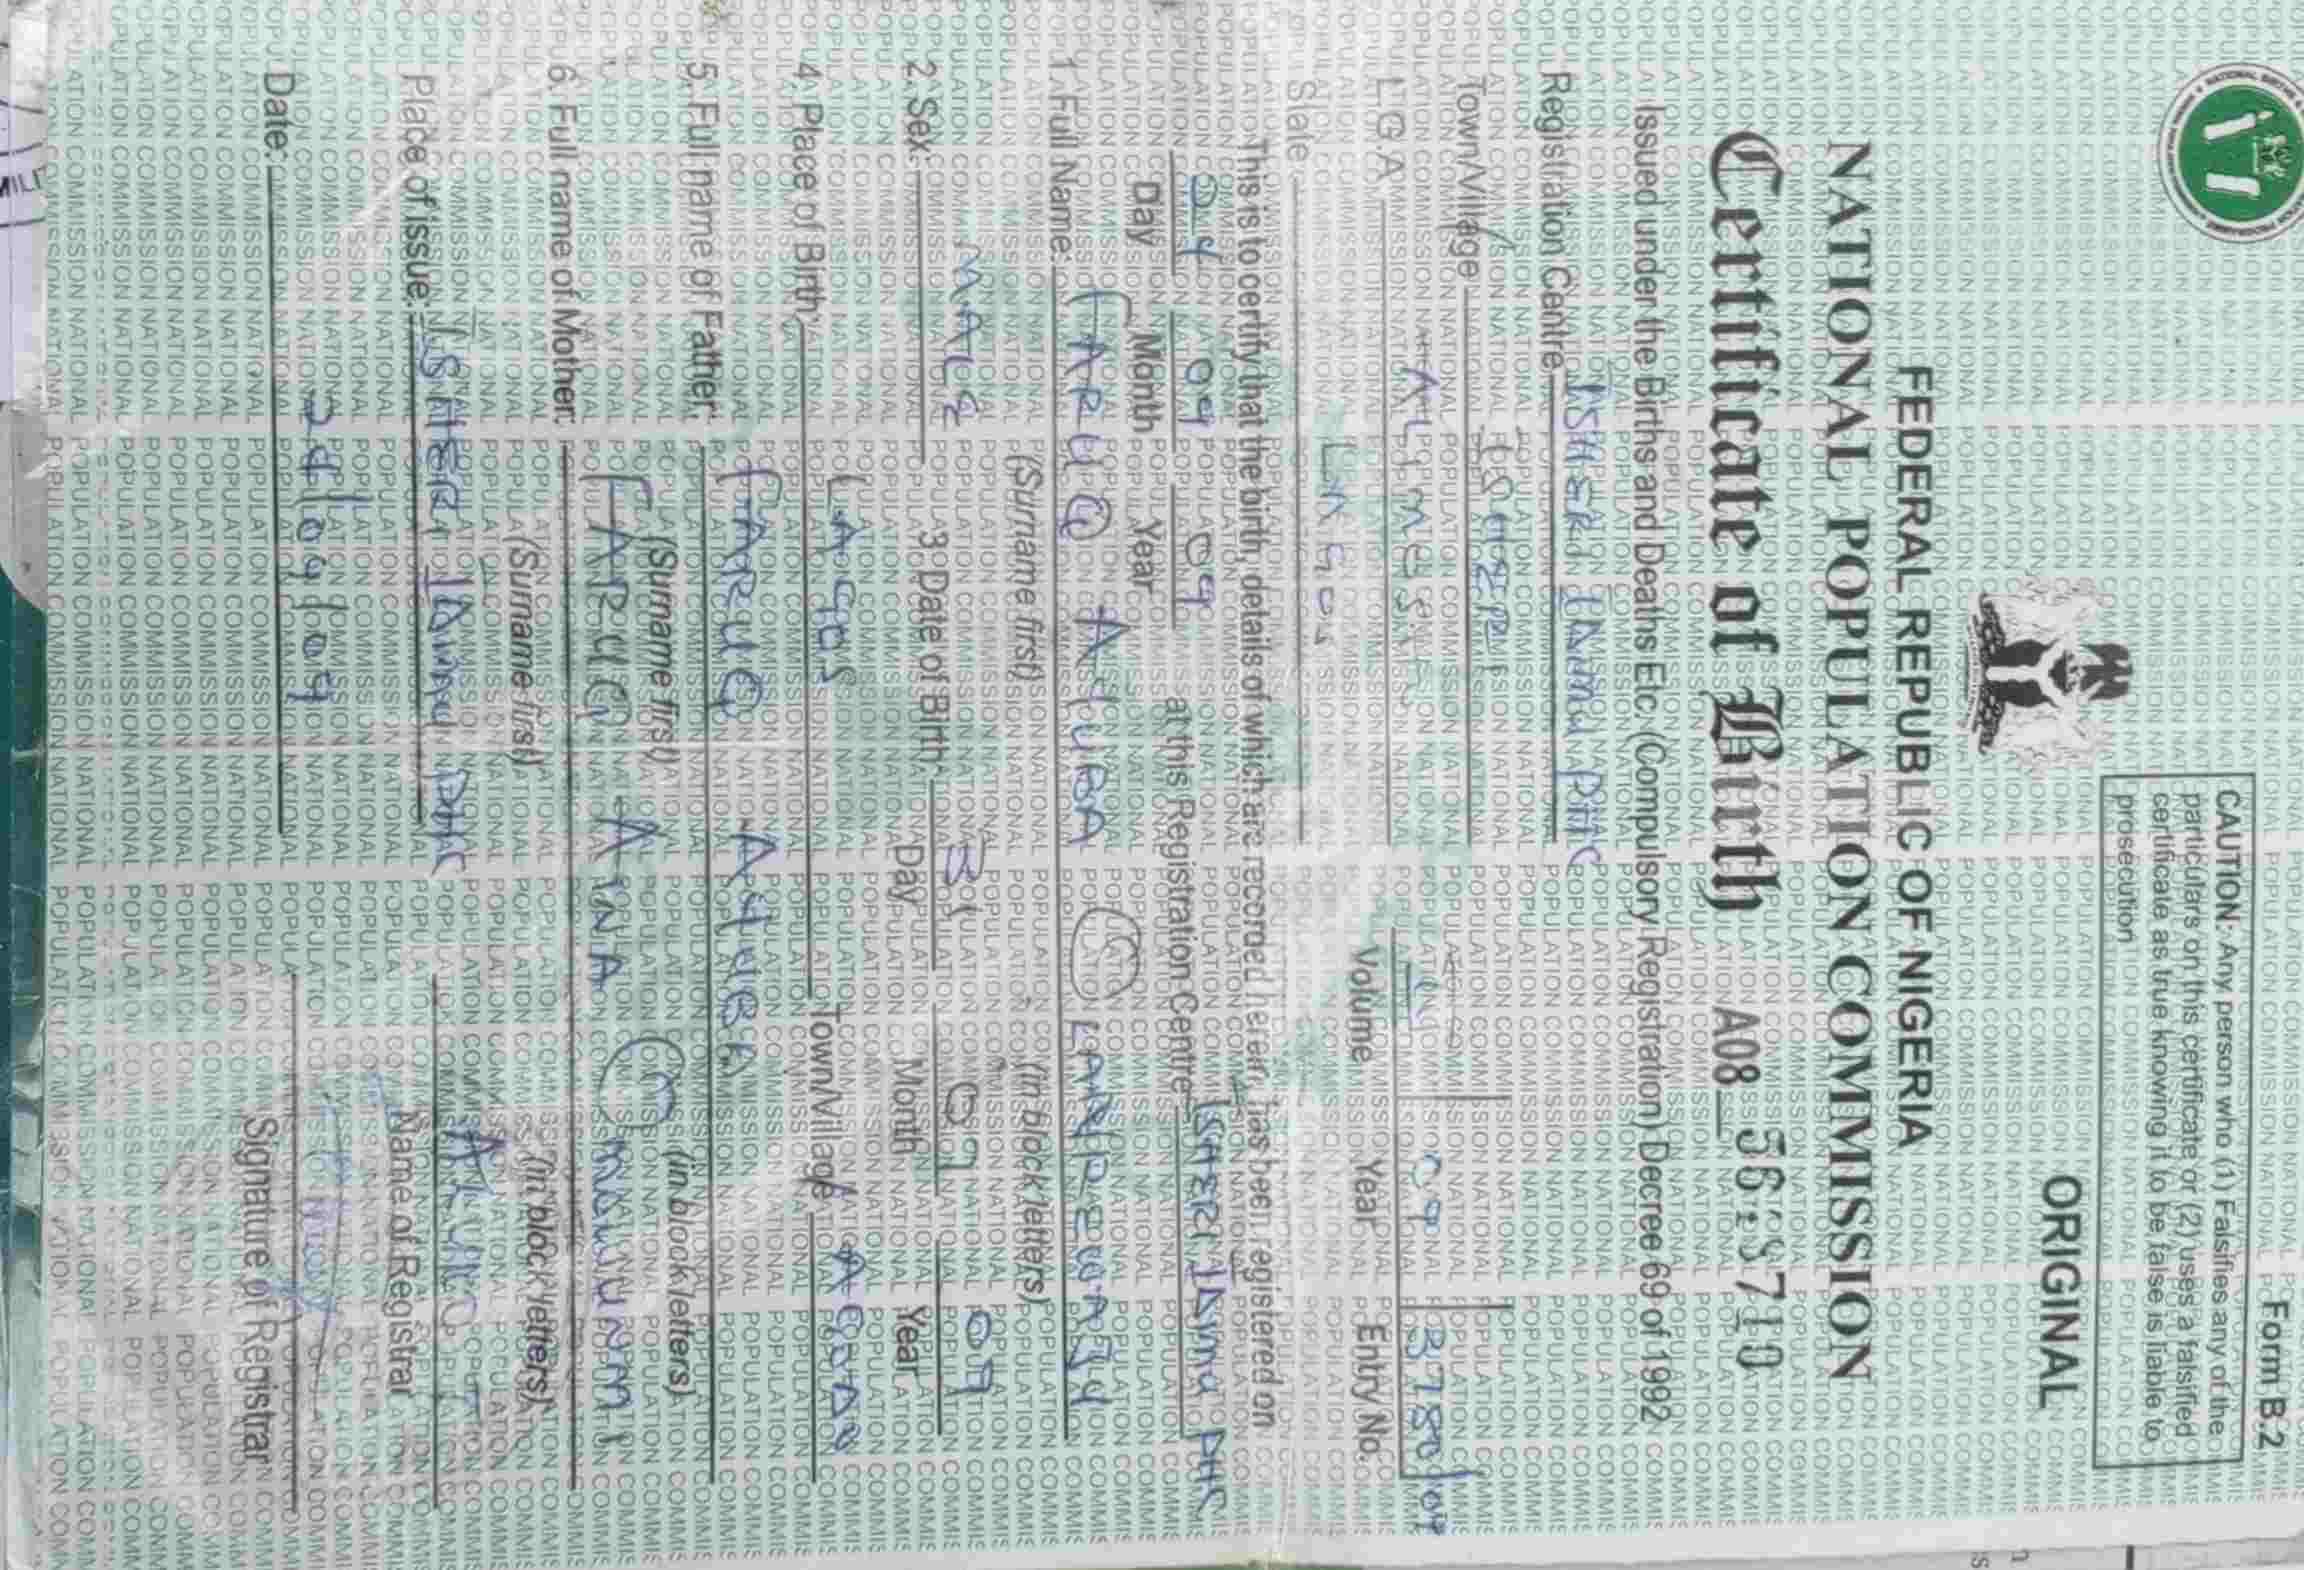 Form B.2
CAUTION: Any person who (1) Falsifies any of the
particulars on this certificate or (2) uses a falsified
certificate as true knowing it to be false is liable to
prosecution
ORIGINAL
FEDERAL REPUBLIC OF NIGERIA
NATIONAL POPULATION COMMISSION
Certificate of Birth A08
Issued under the Births and Deaths Etc. (Compulsory Registration) Decree 69 of 1992
Registration Centre ISHERI IDIMU PHC
Town/Village ISHERI
L.G.A ALIMOSHO 09
Volume Year Entry No.
State LAGOS
This is to certify that the birth, details of which are recorded herein, has been registered on
24 09 09 at this Registration Centre ISHERI IDIMU PHC
Day Month Year
1. Full Name: FARUQ AYUBA
(Surname first) (in block letters)
2. Sex: MALE 3 Date of Birth 31 07 09
Day Month Year
4. Place of Birth: LAGOS Town/Village
5. Full name of Father: FARUQ AYUBA
(Surname first) (in block letters)
6. Full name of Mother: FARUQ AINA
(Surname first) (in block letters)
Place of issue: ISHERI IDIMU PHC
Name of Registrar
Date: 24/09/09
Signature of Registrar